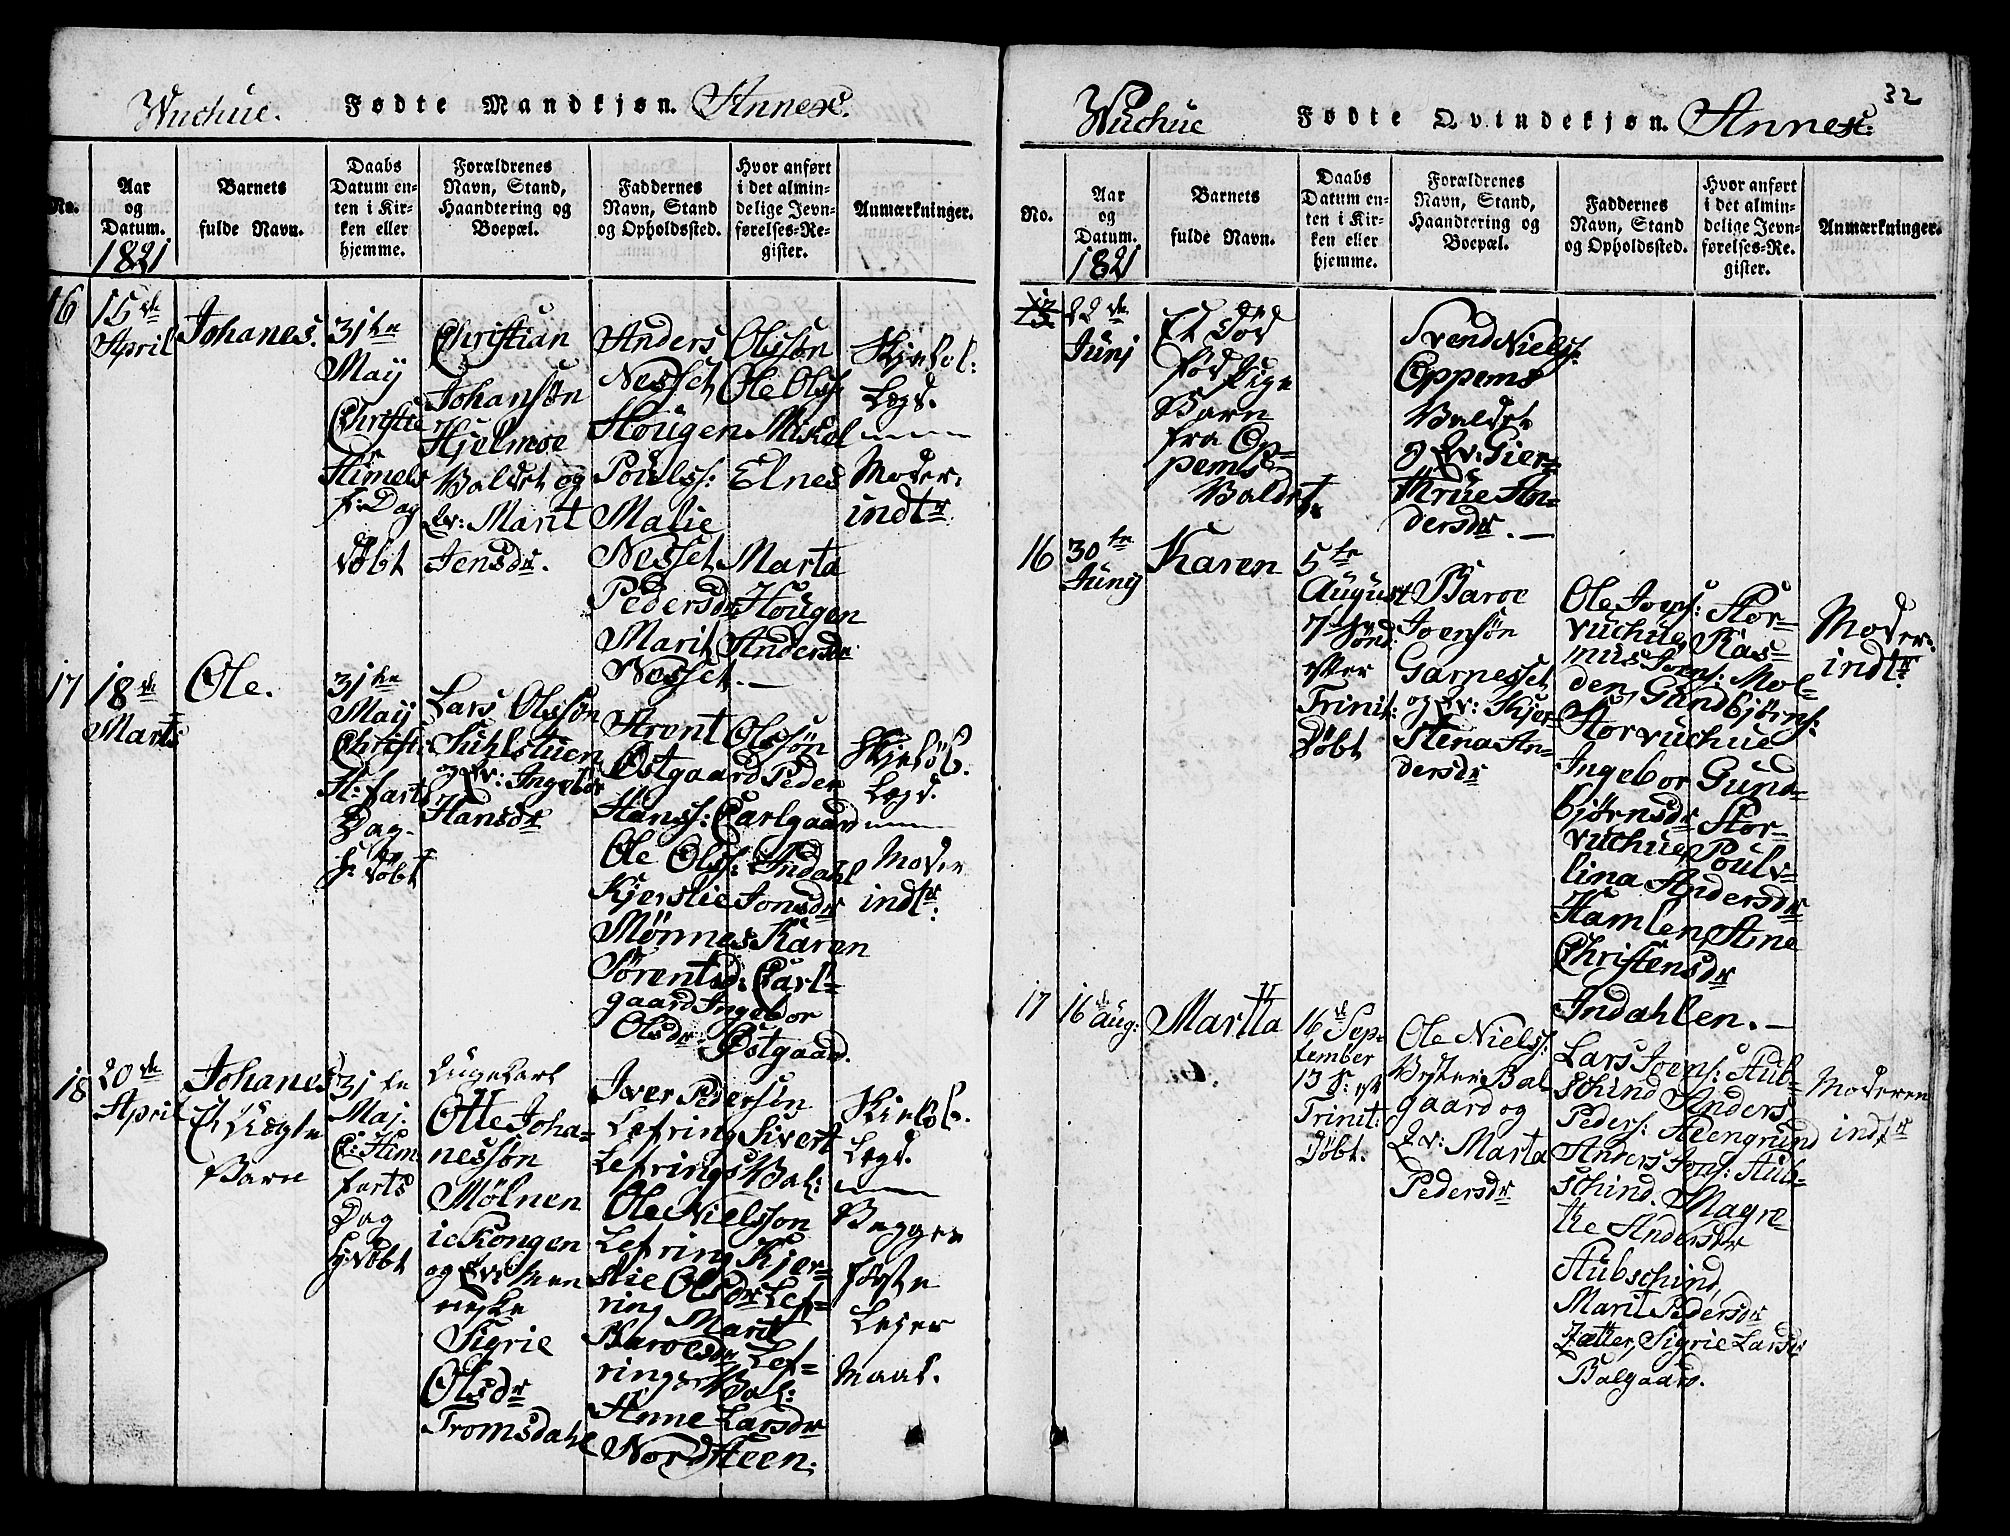 Wuchue. Fødte Mandkjøn. Annex.
No.
Aar
og
Datum.
1821
Barnets
fulde Navn.
Daabs
Datum en-
ten i Kir-
ken eller
hjemme.
Forældrenes
Navn, Stand,
Haandtering og
Boepæl.
Faddernes
Navn, Stand
og Opholdssted.
Hvor anført
i det almin-
delige Jevn-
førelses-Re-
gister.
Anmærkninger.
16
15de
April
Johanes.
31te
Maij
Christie
Himels
f: Dag
døbt
Christian
Johansøn
Hjelmoe
Valdet og
Qv: Marit
Jensdr.
Anders Olssøn
Nesset Ole Olss:
Hougen Mikel
Poulss: Elnes
Malie
Nesset Marta
Pedersdr Hougen
Marit Andersdr
Nesset.
Skjefol:
Legd.
Moder:
indtr
17
18de
Marts
Ole.
31te
Maij
Christi
H: farts
Dag
døbt
Lars Olssøn
Suhlstuen
og Qv: Ingebor
Hansdr
Arent Olssøn
Østgaard Peder
Hanss: Carlgaard
Ole Olss: Indahl
Kjerstie Jonsdr
Mønnes Karen
Sørentsd: Carl-
gaard Ingebor
Olsdr Østgaard.
Skjeføl.
Legd.
Moder
indtr:
18
20de
April
Johanes
Et Uegte
Barn
31te
Maj.
C: Him
farts
Dag
døbt
Ungekarl
Otte Joha-
nessøn
Mølnen
ie Kongen
og Qv: Men
neske
Sigrie
Olsdr
Tromsdahl
Iver Pedersøn
Lefring Sivert
Lefrings Val:
Ole Nielsson
Lefring Kjer-
stie Olsdr Lef-
ring Marit
Baroesdr Lef-
rings Val:
Anne Larsdr
Nordsteen.
Skjefol.
Legd.
Begges
første
Lejer
Maal.
32
Wuchue Fødte Qvindekjøn. Annex:
No.
Aar
og
Datum.
1821
Barnets
fulde Navn.
Daabs
Datum en-
ten i Kir-
ken eller
hjemme.
Forældrenes
Navn, Stand,
Haandtering og
Boepæl.
Faddernes
Navn, Stand
og Opholdssted.
Hvor anført
i det almin-
delige Jevn-
førelses-Re-
gister.
Anmærkninger.
22de
Junj
Et Død
fød Pige
Barn
fra Op-
pems
Valdet
Svend Nielss:
Oppems
Valdet
og Qv: Gier-
thrue An-
dersdr.
16
30te
Junij
Karen
5te
August
7de Sønd
efter
Trinit:
døbt
Baroe
Joensøn
Garnesset
og Qv: Kjer
stena An-
dersdr
Ole Joens: Stor-
vuchue Ras-
mus Joens: Mol-
den, Gundbjørns:
Storvuchue
Ingebor Gund-
bjørnsdr Stor-
vuchue Pouli-
lina Andersdr
Hamlen, Stine
Christensdr
Indahlen.
Moder:
indtr.
17
16de
Aug:
Martta
16de Sep-
tember
13 S: eft
Trinit:
døbt.
Ole Nielss:
Vester Bal-
gaard og
Qv: Marta
Pedersdr
Lars Joens: Stub-
schind Anders
Peders: Steengrund
Anders Jons: Stub-
schind. Magre-
the Andersdr
Stubschind,
Marit Pedersdr
Tætter, Sigrie Larsdr
Balgaard.
Moderen
indtr